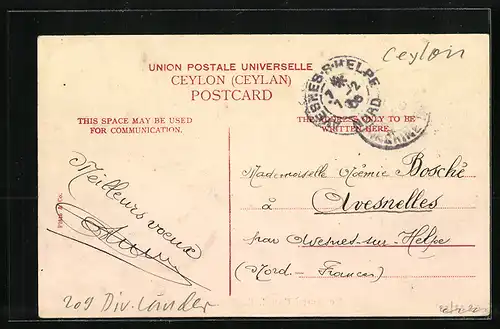 Ceylon
UNION POSTALE UNIVERSELLE
CEYLON (CEYLAN)
POSTCARD
AVESNES-S-HELPE
NORD
THIS SPACE MAY BE USED
FOR COMMUNICATION.
THE ADDRESS ONLY TO BE
WRITTEN HERE.
Meilleurs voeux
Mademoiselle Noémie Bosché
à Avesnelles
par Avesnes-sur-Helpe
(Nord.- France)
Plâté & Co.
209 Div. länder